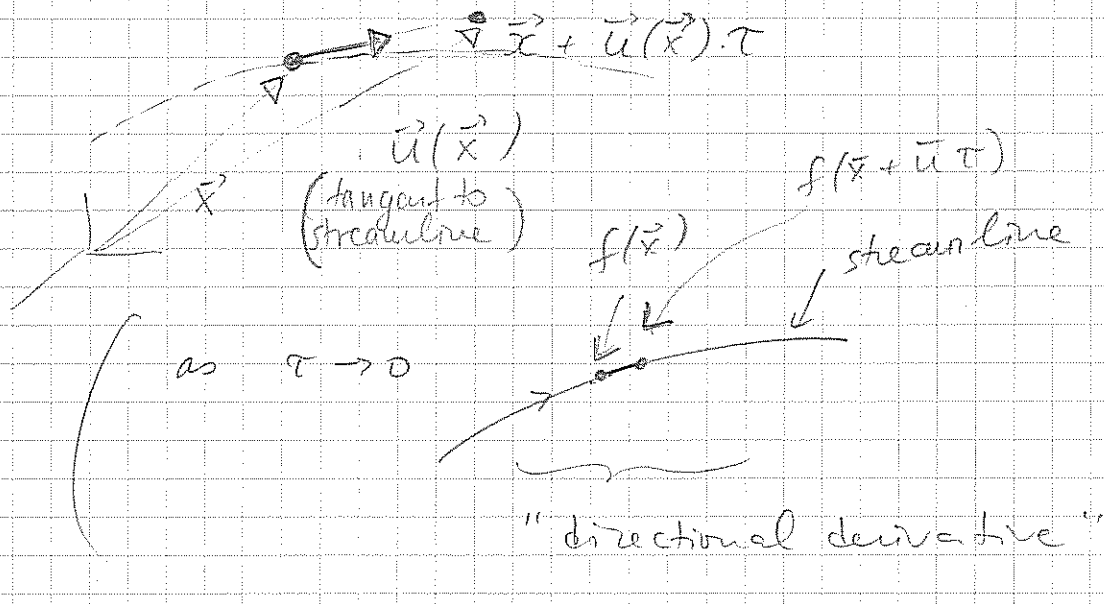 x⃗ + u⃗(x⃗).τ
u⃗(x⃗)
(tangant to
streamline)
x⃗
f(x̄ + ū τ)
f(x⃗)
streamline
as τ → 0
"directional derivative"